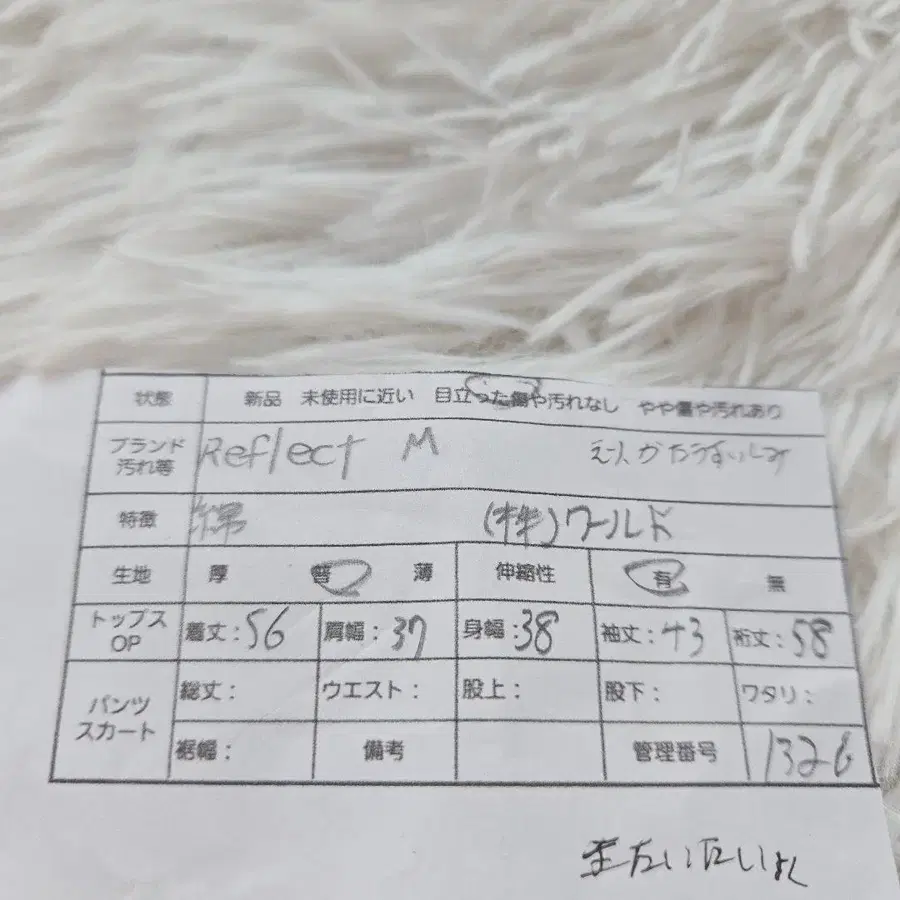 状態 新品 未使用に近い 目立った傷や汚れなし やや傷や汚れあり
ブランド 汚れ等 Reflect M
特徴 綿 (株)ワールド
生地 厚 普 薄 伸縮性 有 無
トップス OP 着丈:56 肩幅:37 身幅:38 袖丈:43 裄丈:58
パンツ スカート 総丈: ウエスト: 股上: 股下: ワタリ:
裾幅: 備考 管理番号 1326